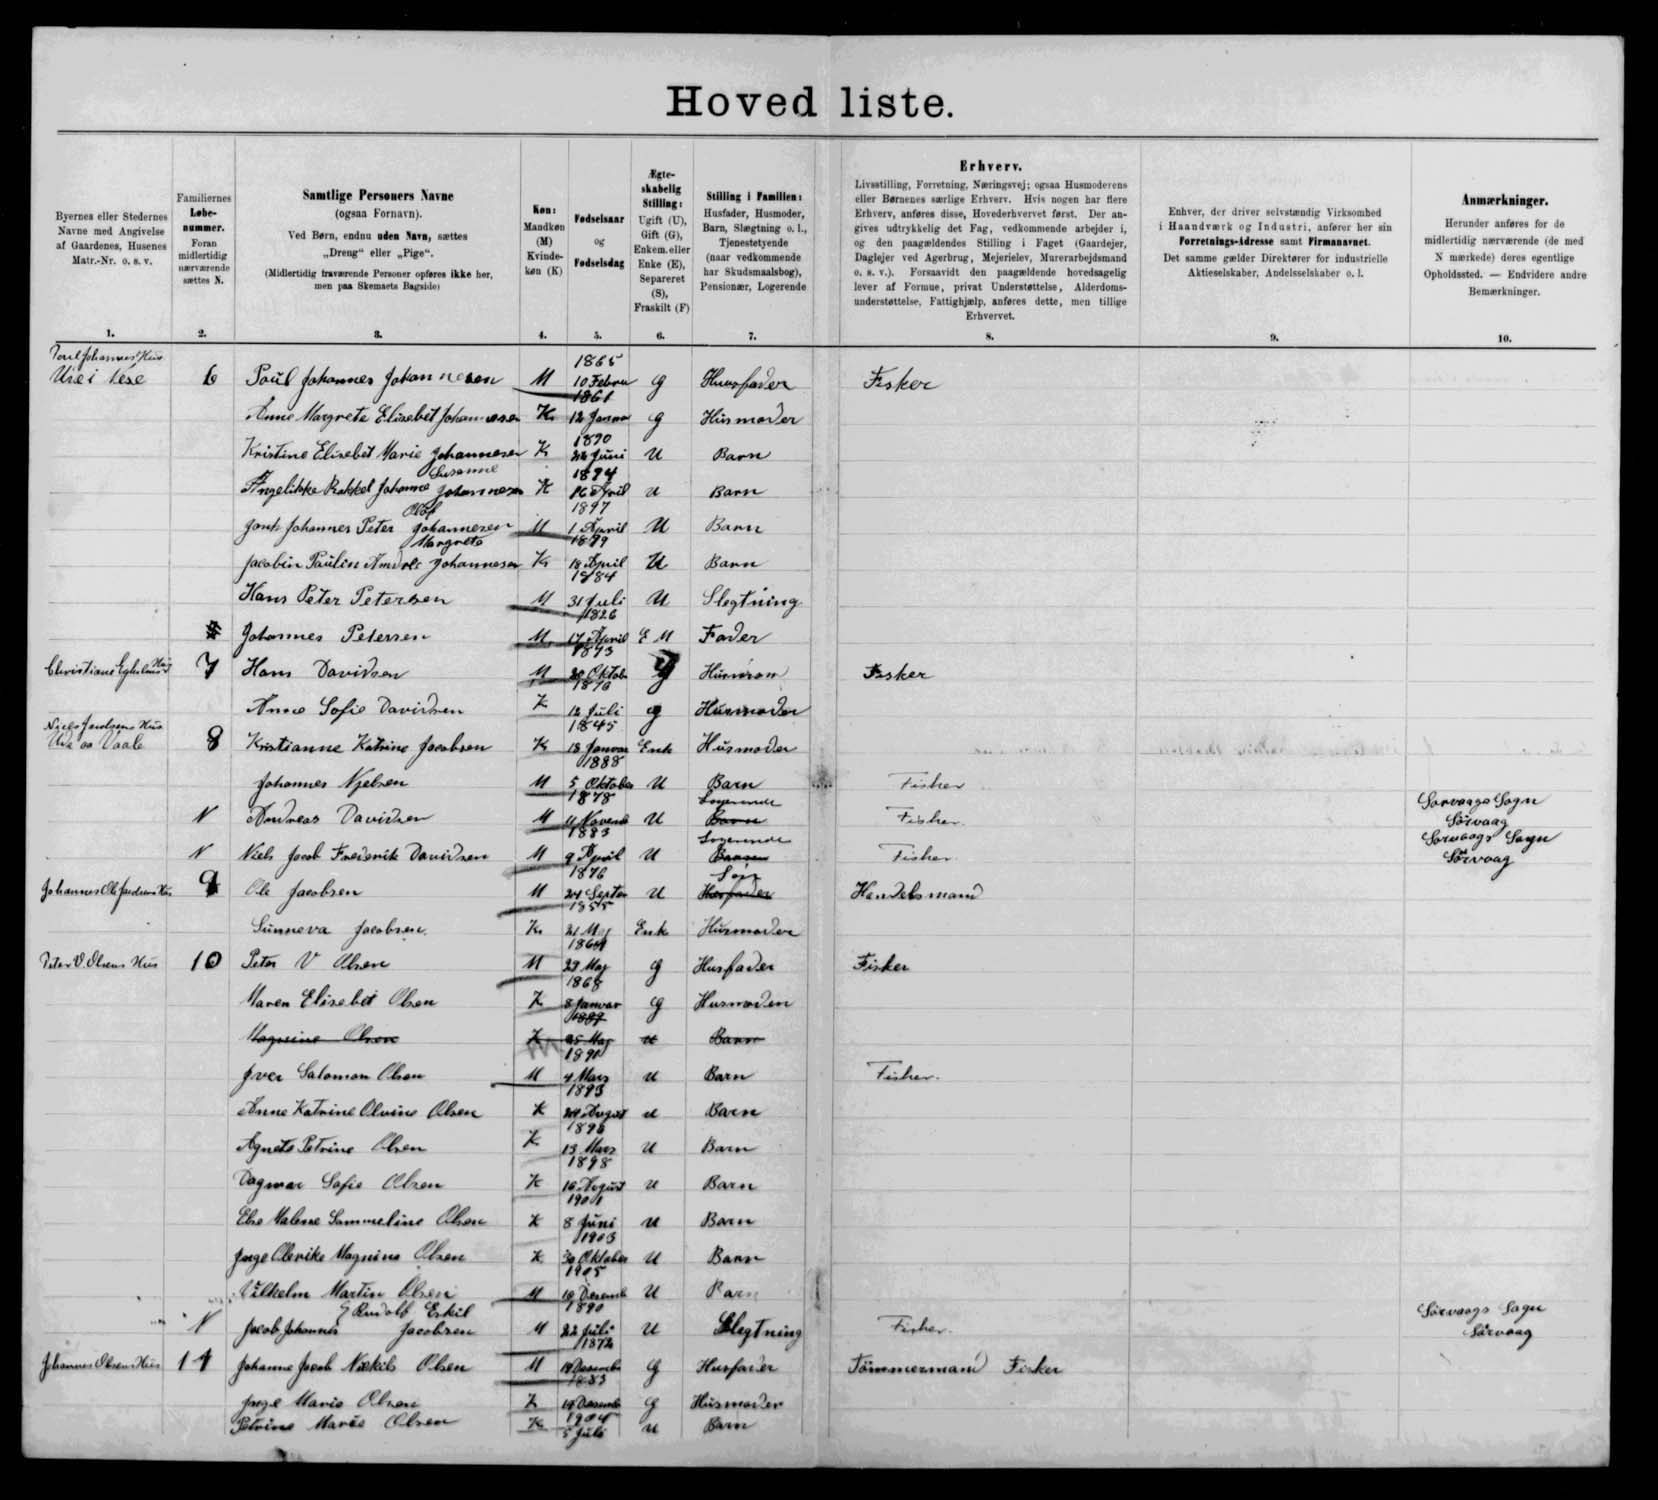 Hoved liste.
Byernes eller Stedernes Navne med Angivelse af Gaardenes, Husenes Matr.-Nr. o. s. v.
Familiernes Løbenummer. Foran midlertidig nærværende sættes N.
Samtlige Personers Navne
(ogsaa Fornavn).
Ved Børn, endnu uden Navn, sættes
„Dreng“ eller „Pige“.
(Midlertidig fraværende Personer opføres ikke her,
men paa Skemaets Bagside)
Køn: Mandkøn (M) Kvindekøn (K)
Fødselsaar og Fødselsdag
Ægteskabelig Stilling: Ugift (U), Gift (G), Enkem. eller Enke (E), Separeret (S), Fraskilt (F)
Stilling i Familien: Husfader, Husmoder, Barn, Slægtning o. l., Tjenestetyende (naar vedkommende har Skudsmaalsbog), Pensionær, Logerende
Erhverv.
Livsstilling, Forretning, Næringsvej; ogsaa Husmoderens
eller Børnenes særlige Erhverv. Hvis nogen har flere
Erhverv, anføres disse, Hovederhvervet først. Der an-
gives udtrykkelig det Fag, vedkommende arbejder i,
og den paagældendes Stilling i Faget (Gaardejer,
Daglejer ved Agerbrug, Mejerielev, Murerarbejdsmand
o. s. v.). Forsaavidt den paagældende hovedsagelig
lever af Formue, privat Understøttelse, Alderdoms-
understøttelse, Fattighjælp, anføres dette, men tillige
Erhvervet.
Enhver, der driver selvstændig Virksomhed
i Haandværk og Industri, anfører her sin
Forretnings-Adresse samt Firmanavnet.
Det samme gælder Direktører for industrielle
Aktieselskaber, Andelsselskaber o. l.
Anmærkninger.
Herunder anføres for de
midlertidig nærværende (de med
N mærkede) deres egentlige
Opholdssted. — Endvidere andre
Bemærkninger.
1. 2. 3. 4. 5. 6. 7. 8. 9. 10.
6 Poul Johannes Johannesen M 1865 10 Febru g Husfader Fisker
Anne Margrete Elisebet Johannesen K 1861 12 Januar g Husmoder
Kristine Elisebet Marie Johannesen K 1890 22 Juni U Barn
Angelikke Rakkel Johanne Susanne Johannesen K 1894 16 April U Barn
Johannes Peter Olof Johannesen M 1897 1 April U Barn
Jacobin Paulin Margrete Johannesen K 1899 18 April U Barn
Hans Peter Petersen M 1884 31 Juli U Slegtning
Johannes Petersen M 1826 17 April E M Fader
7 Hans Davidsen M 1873 Oktob g Fisker
Anne Sofie Davidsen K 1876 12 Juli g Husmoder
Niels Jacobsens Hus
8 Kristianne Katrine Jacobsen K 1845 18 Januar Enk Husmoder
Johannes Njelsen M 1888 5 Oktober U Barn Fisker
N Andreas Davidsen M 1878 11 Novemb U Logerende Barn Fisker. Sorvaags Sogn Sörvaag
N Niels Jacob Frederik Davidsen M 1883 9 April U Logerende Fisker. Sorvaags Sogn Sörvaag
9 Ole Jacobsen M 1876 24 Septer U Søn Husfader Handelsmand
Sunneva Jacobsen. K 1855 21 Maj Enk Husmoder
Peter V. Olsens Hus 10 Peter V Olsen M 29 Maj g Husfader Fisker
Maren Elisebet Olsen K 1868 8 Januar g Husmoder
Magnine Olsen K 1889 25 Maj U Barn
Iver Salomon Olsen M 1891 4 Mars U Barn Fisker.
Anne Katrine Olvine Olsen K 1893 24 August U Barn
Agnete Petrine Olsen K 1896 13 Mars U Barn
Dagmar Sofie Olsen K 1898 16 August U Barn
Else Malene Sammeline Olsen K 1901 8 Juni U Barn
Inge Olevike Magnine Olsen K 1903 30 Oktober U Barn
Vilhelm Martin Olsen M 1905 18 Desemb U Barn
N Jacob Johannes Rudolf Eskil Jacobsen M 1890 22 Juli U Slegtning Fisker. Sörvaags Sogn Sörvaag
Johannes Olsens Hus 11 Johanne Jacob Olsen M 1872 Desembe g Husfader Tömmermand Fisker
Inge Marie Olsen K 1883 Desemb g Husmoder
Petrine Marie Olsen K 1904 5 Juli U Barn